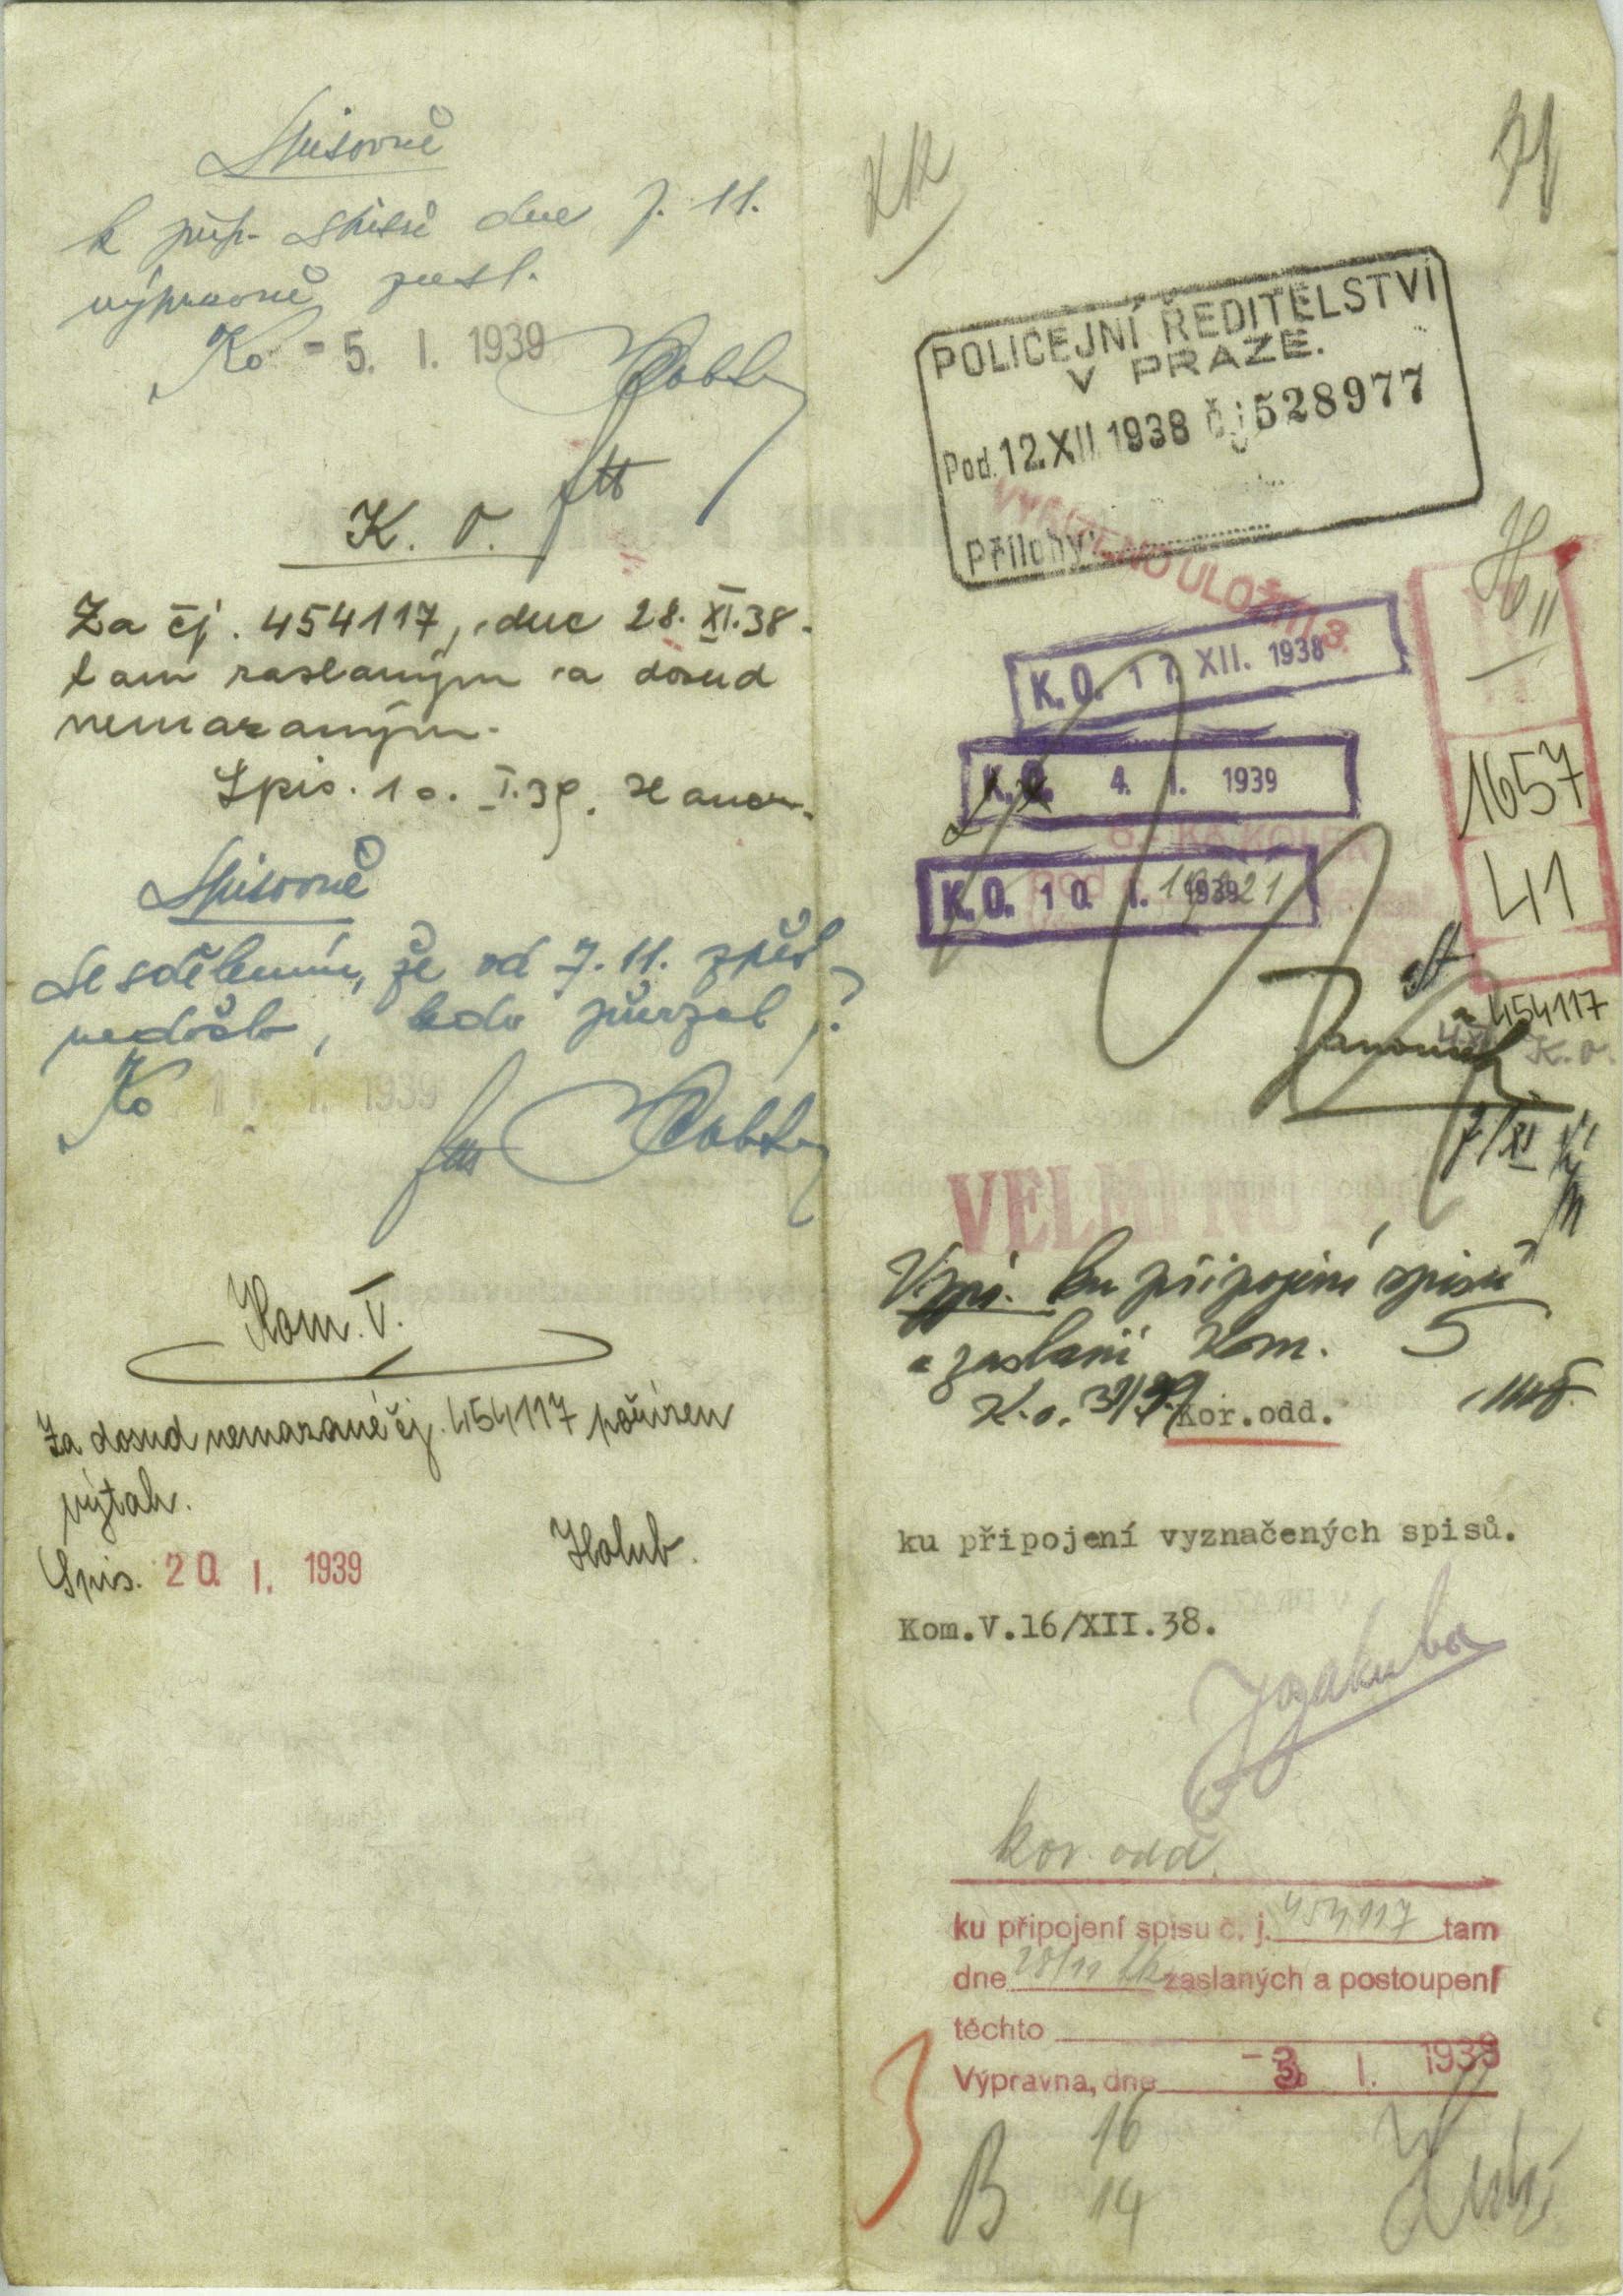 Spisovně
k příp. spisů dne 7. 11.
výpravně zasl.
Ko - 5. I. 1939
K. O.
Za čj. 454117, dne 28. XI. 38.
tam zaslaným a dosud
nemazaným.
Spis. 10. I. 39.
Spisovně
se sdělením, že od 7. 11. zpět
nedošlo, kdo převzal?
Ko 11. I. 1939
Kom. V.
Za dosud nemazané čj. 454117 pořízen
výtah.
Spis. 20. I. 1939 Holub.
POLICEJNÍ ŘEDITELSTVÍ
V PRAZE.
Pod. 12. XII. 1938 č.j. 528977
Přílohy:
VYŘÍZENO ULOŽIT
K. O. 17. XII. 1938
K. O. 4. I. 1939
K. O. 10. I. 1939
H II
1657
41
454117
K. O.
7/XI
VELMI NUTNÉ
Vypr. ku připojení spisů
a zaslání Kom. 5
K. o.
Kor.odd.
ku připojení vyznačených spisů.
Kom.V.16/XII.38.
kor. odd.
ku připojení spisu č. j. 454117 tam
dne 28/11 zaslaných a postoupení
těchto
Výpravna, dne - 3. I. 1939
3
B 16
14